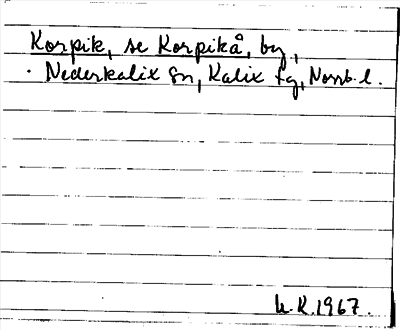 Korpik, se Korpikå, by,
Nederkalix sn, Kalix tg, Norrb. l.
K. K. 1967.